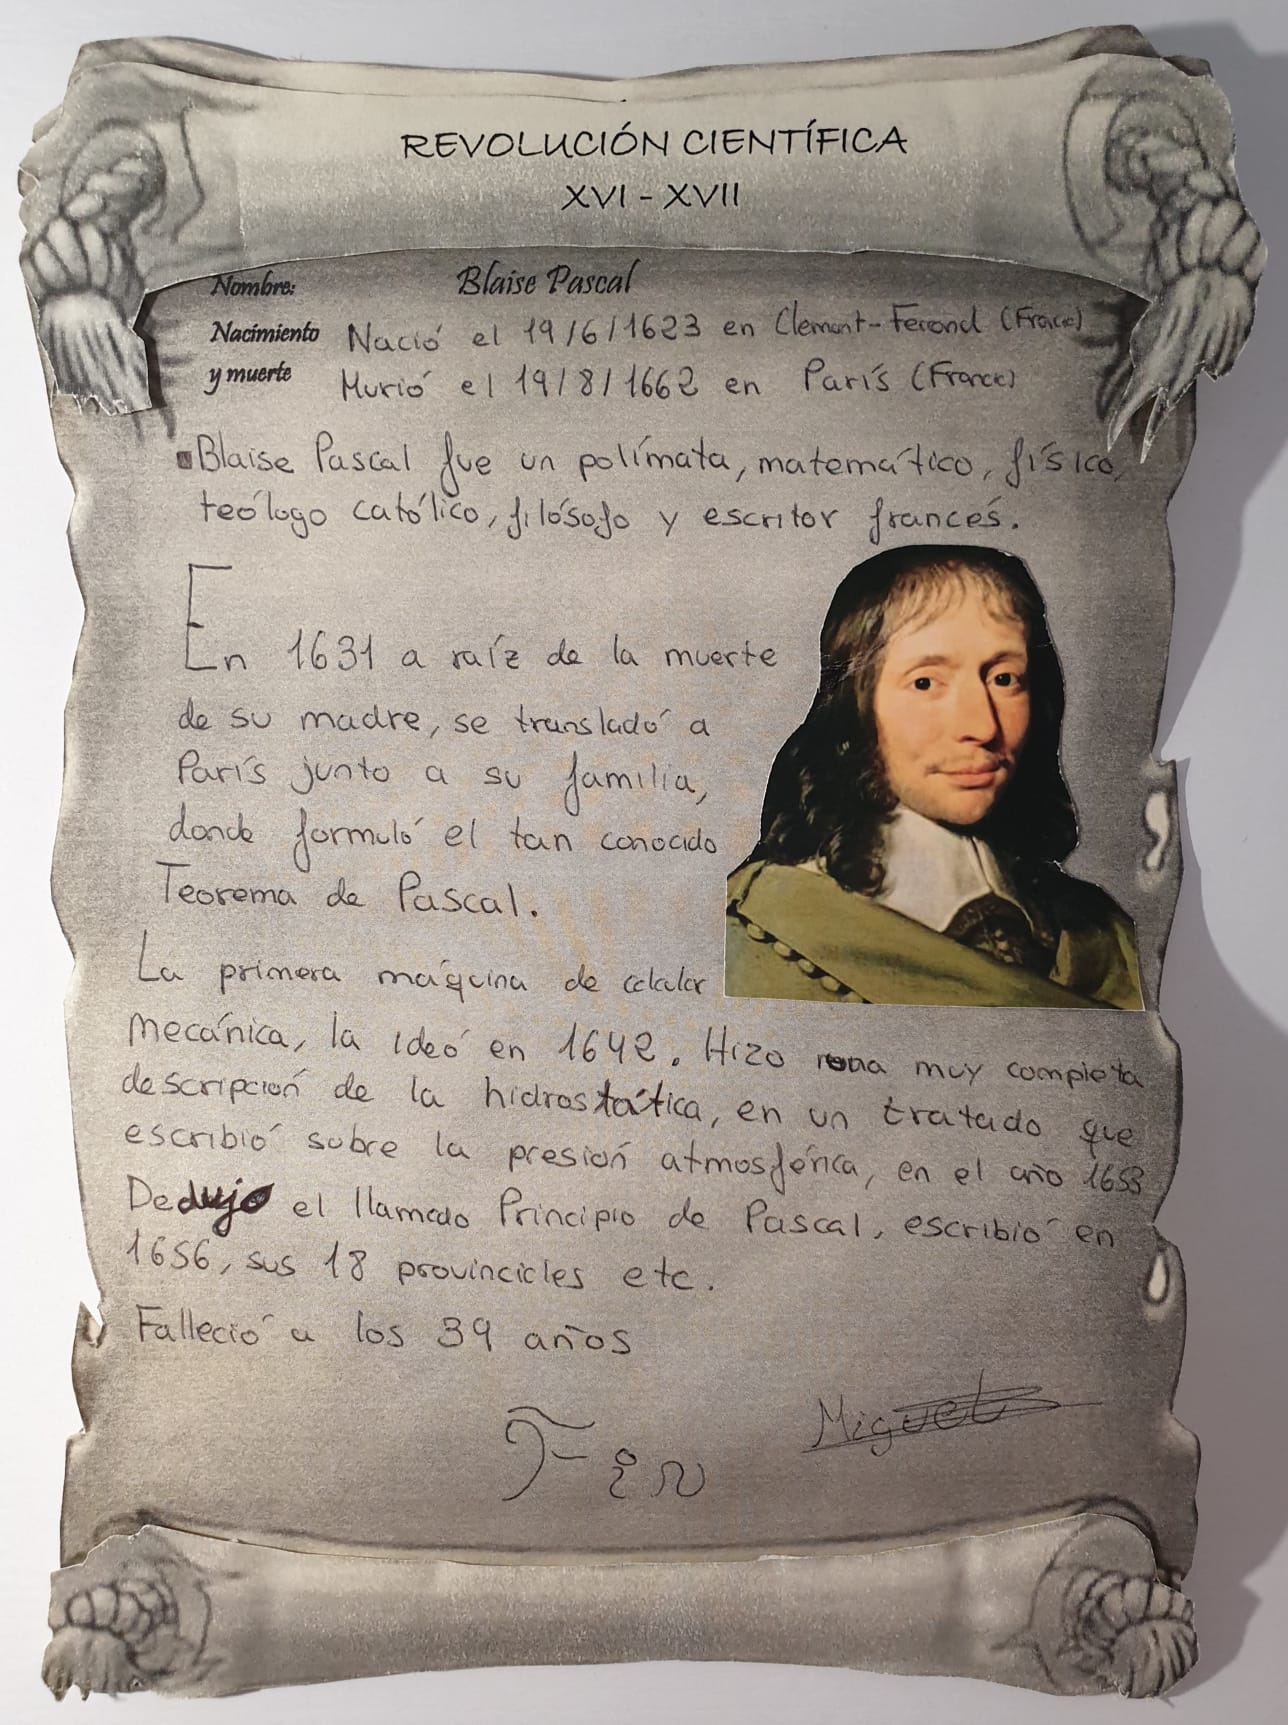 REVOLUCIÓN CIENTÍFICA
XVI - XVII
Nombre: Blaise Pascal
Nacimiento Nació el 19/6/1623 en Clemont-Ferond (France)
y muerte Murió el 19/8/1662 en París (France)
Blaise Pascal fue un polímata, matemático, físico,
teólogo católico, filósofo y escritor francés.
En 1631 a raíz de la muerte
de su madre, se transladó a
París junto a su familia,
donde formuló el tan conocido
Teorema de Pascal.
La primera máquina de calcular
mecánica, la ideó en 1642. Hizo una muy completa
descripción de la hidrostática, en un tratado que
escribió sobre la presión atmosférica, en el año 1653
Dedujo el llamado Principio de Pascal, escribió en
1656, sus 18 provinciales etc.
Falleció a los 39 años
Miguel
Fin